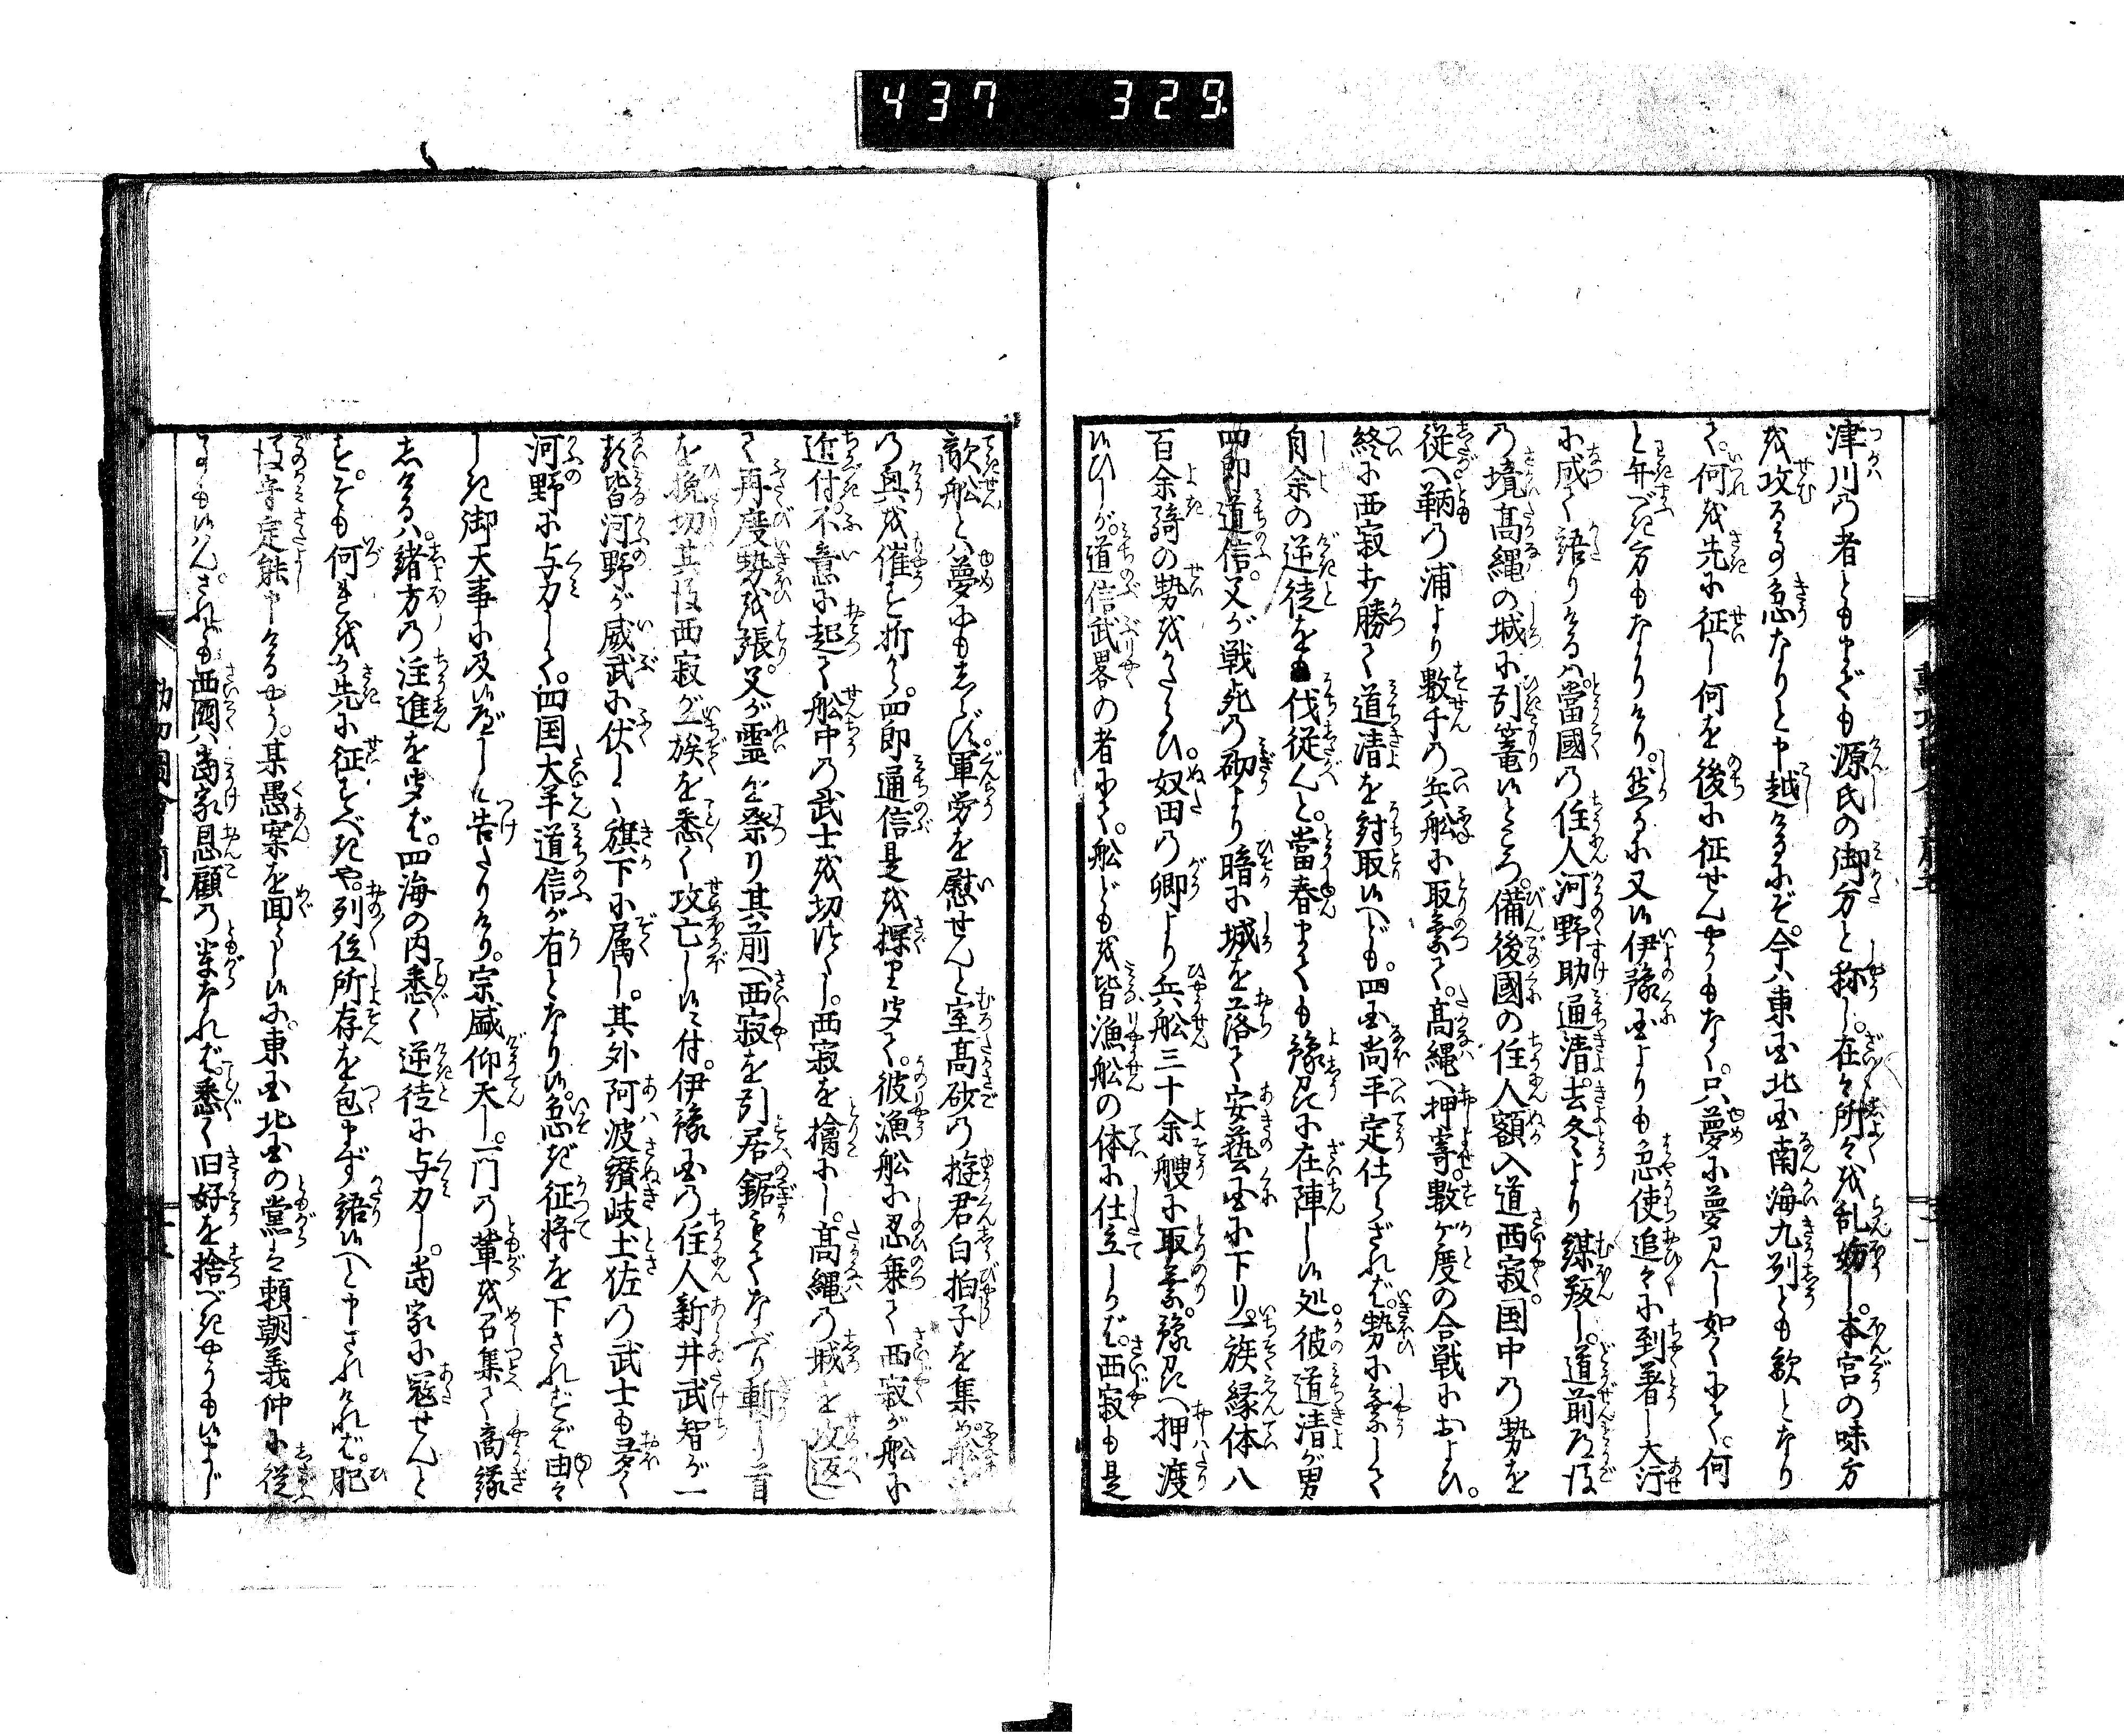 437 329.
津川の者ともまでも源氏の御方と称し。在々所々を乱妨し。本宮の味方
を攻るの急なりと申越けるにぞ。今ハ東国北国南海九列とも敵となり
て。何を先に征し何を後に征せんやうもなく。只夢に夢見し如くにて。何
と弁べき方もなかりけり。然るに又候伊豫国よりも急使追々に到著し大汗
に成て語りけるハ。當國の住人河野助通清。去冬より謀叛し。道前道後
の境髙縄の城に引篭候ところ。備後國の住人額入道西寂。国中の勢を
従へ鞆の浦より数千の兵船に取乗て。髙縄へ押寄。数ヶ度の合戦におよひ。
終に西寂打勝て道清を討取候へども。四国尚平定仕らざれば。勢に乗して
自余の逆徒をも伐従んと。當春まても豫州に在陣し候処。彼道清が男
四郎道信。父が戦死の砌より暗に城を落て安藝国に下り。一族縁体八
百余騎の勢をかたらひ。奴田の郷より兵船三十余艘に取乗。豫州へ押渡
候ひしが。道信武畧の者にて。船どもを皆漁船の体に仕立しかば。西寂も是
敵船とハ夢にもしらず。軍労を慰せんと室髙砂の遊君白拍子を集め。船
の興を催す折から。四郎通信是を探り聞て。彼漁船に忍乗て西寂が船に
近付。不意に起て船中の武士を切ちらし。西寂を擒にし。髙縄の城を攻返し
て再度勢を張。父が霊を祭り其前へ西寂を引居鋸をもてなぶり斬に首
を挽切。其後西寂が一族を悉く攻亡し候に付。伊豫国の住人新井武智が一
類皆河野が威武に伏し。旗下に属し。其外阿波讃岐土佐の武士も多く
河野に与力して。四国大半道信が有となり候。急ぎ征将を下されずば由々
しき御大事に及候べしと告たりけり。宗盛仰天し。一門の輩を召集て商議
しけるハ。緒方の注進を聞ば。四海の内悉く逆徒に与力し。当家に冦せんと
す。そも何れをか先に征すべきや。列位所存を包まず語候へと申されければ。肥
後守定能申けるやう。某愚案を面らし候に。東国北国の黨ハ頼朝義仲に従
ふも候はん。されども西國ハ當家恩顧の輩なれば。悉く旧好を捨べきやうも候まじ